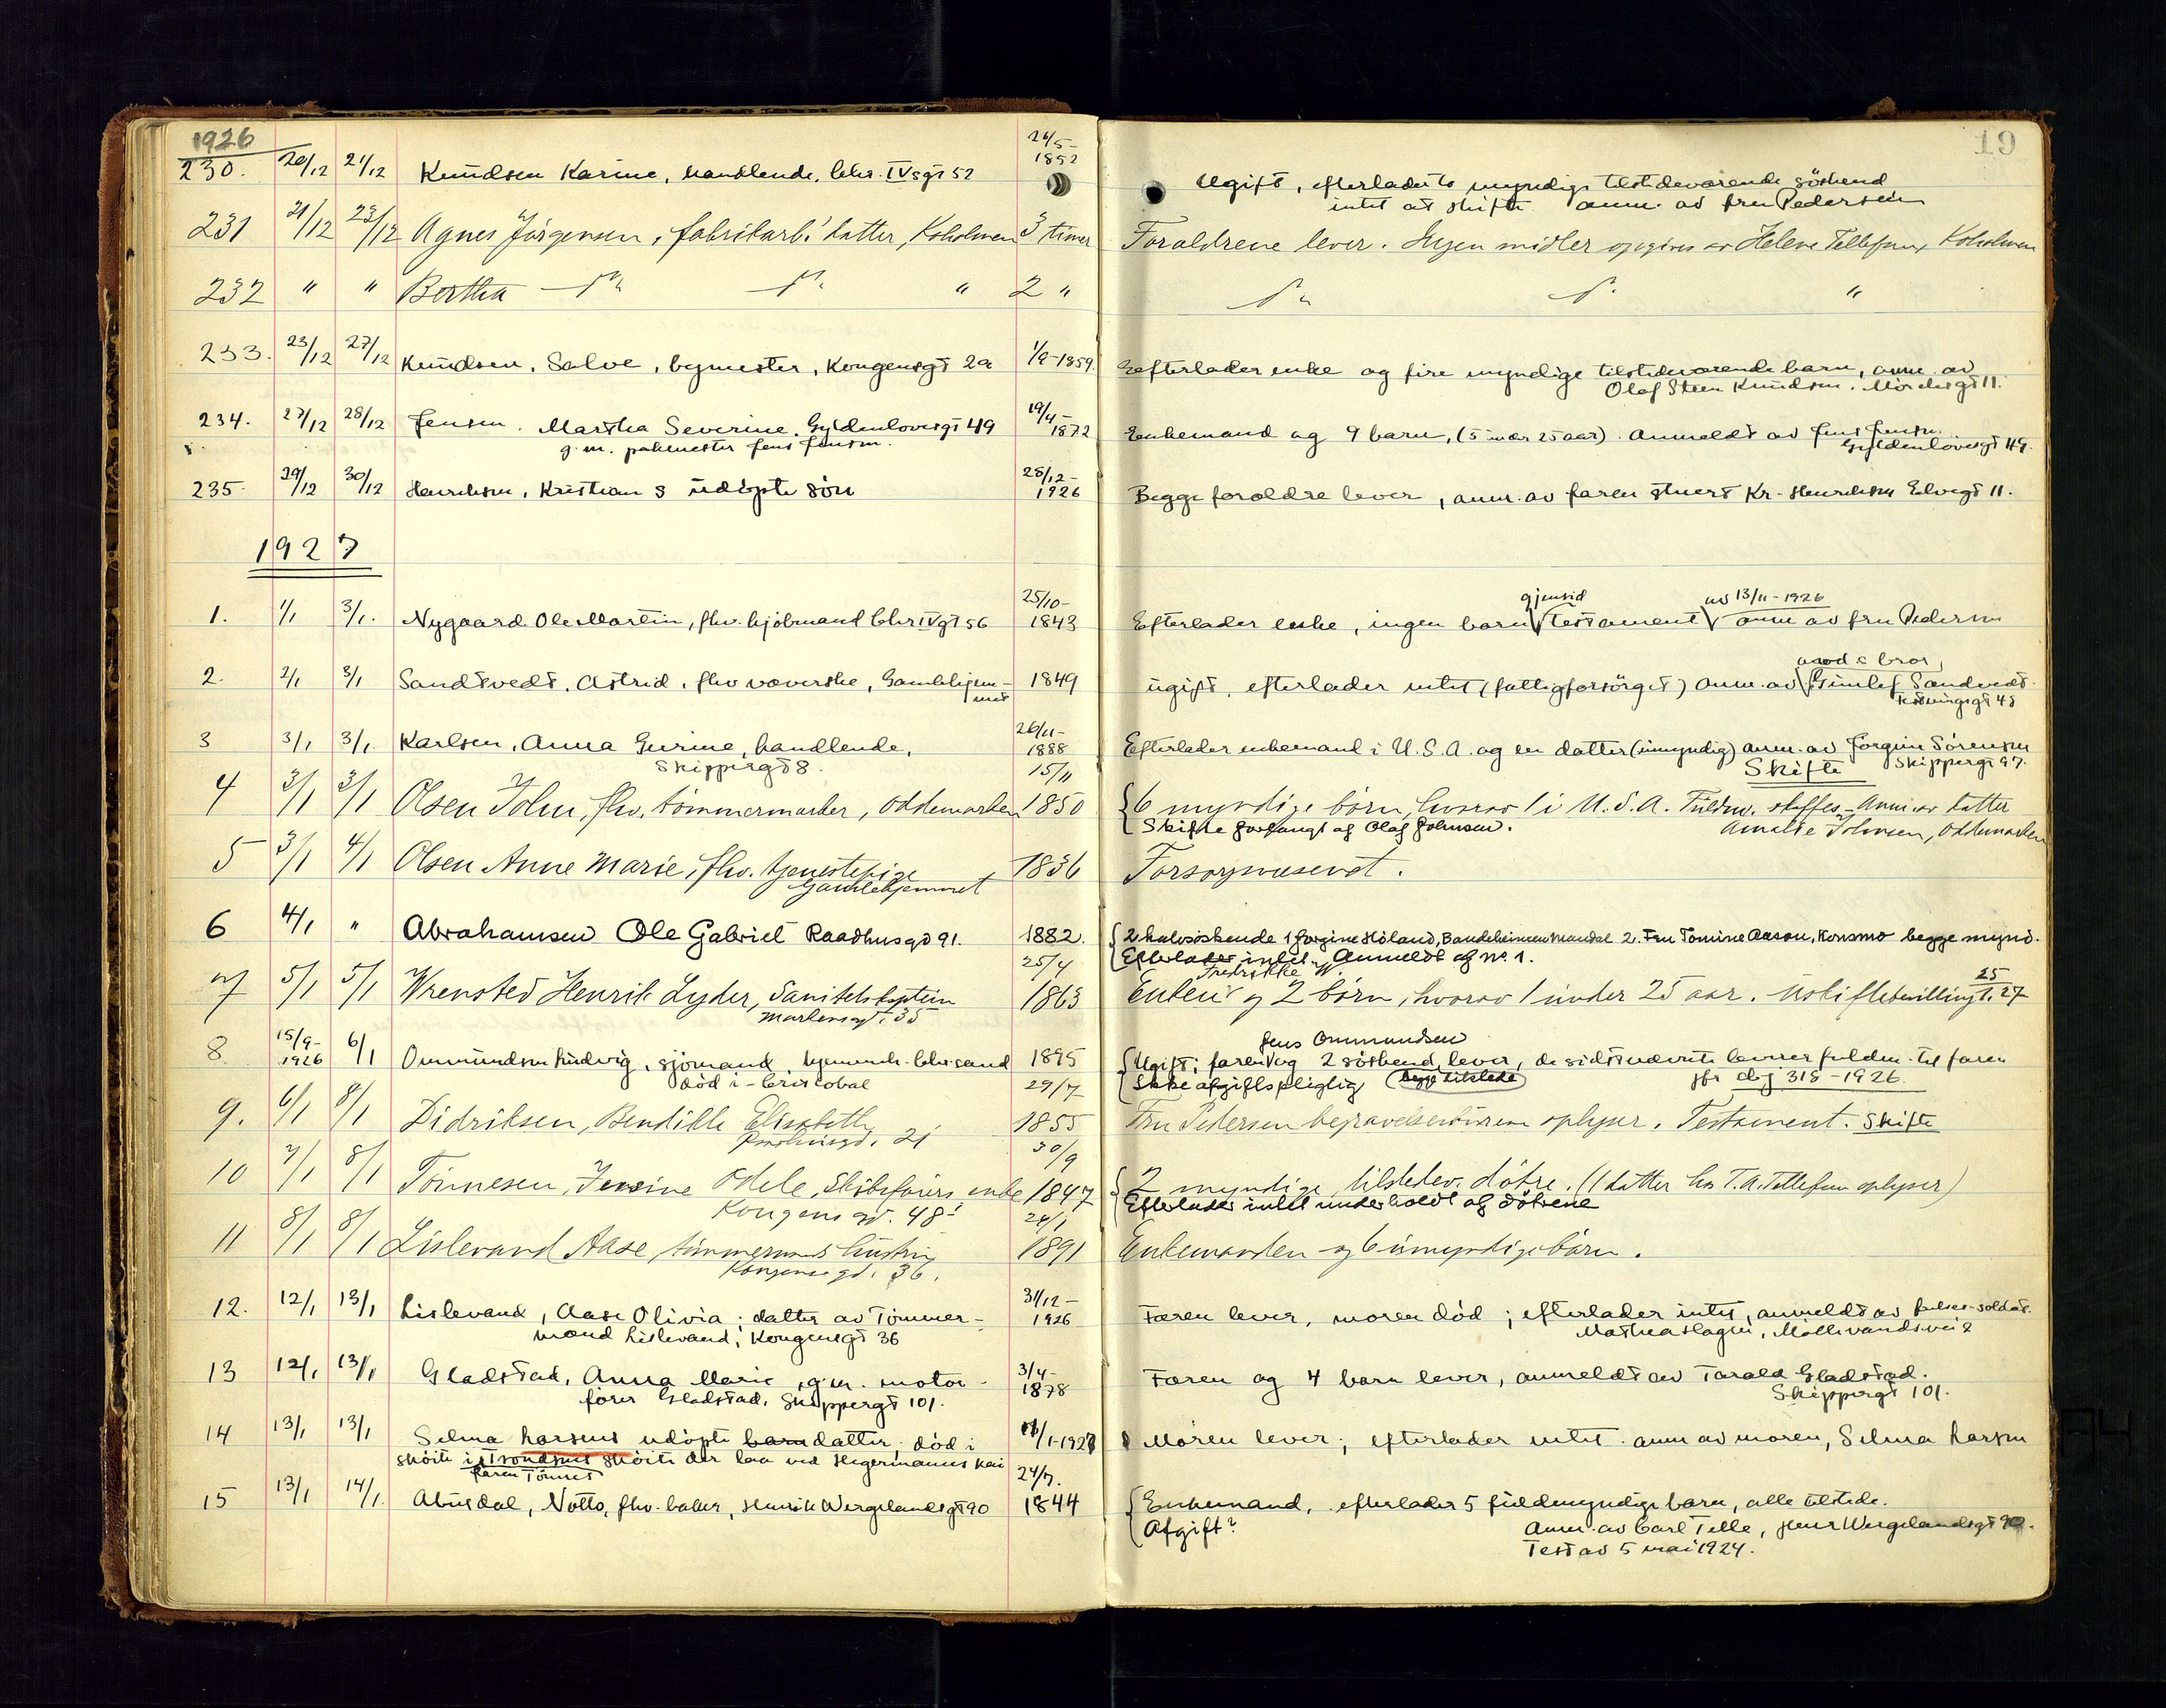 19
1926
230. 20/12 21/12 Knudsen Karine, handlende, Chr. IVsgt 52 24/5-1852 Ugift, efterlader to myndige tilstedeværende søskend
intet at skifte anm. av fru Pedersen
231 21/12 23/12 Agnes Jørgensen, fabrikarb. datter, Koholmen 3 timer Forældrene lever. Ingen midler opgives av Helene Tellefsen, Koholmen
232 " " Bertha " 2 " "
233. 23/12 27/12 Knudsen, Salve, bymester, Kongensgt 2a 1/9-1859. Efterlader enke og fire myndige tilstedeværende barn, anm. av
Olaf Steen Knudsen,
234. 27/12 28/12 Jensen. Martha Severine. Gyldenlovesgt 49 19/4-1872 Enkemand og 9 barn, (5 under 25 aar). Anmeldt av Jens Jensen.
g.m. pakmester Jens Jensen. Gyldenløvesgt 49.
235. 29/12 30/12 Henriksen, Kristian s udøpte søn 28/12-1926 Begge foroldre lever, anm. av faren stuert Kr. Henriksen Elvegt 11.
1927
1. 1/1 3/1. Nygaard Ole Martin, fhv. kjøbmand Chr IVgt 56 25/10-1843 Efterlader enke, ingen barn gjensid testament av 13/11-1926 anm av fru Pedersen
2. 2/1 3/1 Sandtvedt, Astrid, fhv væverske, Gamlehjem- 1849 ugift, efterlader intet (fattigforsørget) anm. av avød s bror, Gunlef Sandvedt.
met
3 3/1 3/1. Karlsen, Anna Gurine, handlende, 26/11-1888 Efterlader enkemand i U.S.A. og en datter (umyndig) anm. av Jørgine Sørensen
Skippergt 8. Skifte Skippergt 97.
4 3/1 3/1 Olsen John, fhv. tømmermarker, Oddemarken 15/11 1850 6 myndige børn, hvorav 1 i U.S.A. Fuldm. skaffes. Anm. av datter
Skifte forlangt af Olaf Johnsen. Amalie Johnsen, Oddemarken
5 3/1 4/1 Olsen Anne Marie, fhv. tjenestepige 1836 Forsorgsvæsenet.
Gamlehjemmet
6 4/1 " Abrahamsen Ole Gabriel Raadhusgt 91. 1882. 2 halvsøskende 1 Jorgine Höland, Mandal 2. Fru Tomine Aasen, Konsmo begge mynd.
Efterlader intet. Anmeldt af No. 1.
7 5/1 5/1 Wrensted Henrik Lyder, Sanitetskaptein 25/4 1863 Enken Fredrikke W. og 2 børn, hvorav 1 under 25 aar. Uskiftebevilling 25/1. 27
Markensgt. 35
8. 15/9-1926 6/1 Ommundsen Ludvig, sjømand, hjemmeh. Chr.sand 1895 Ugift; faren Jens Ommundsen og 2 søskend lever, de sidstnævnte leverer fuldm. til faren
død i Cristobal Ikke afgiftspligtig begge tilstede jfr dbj 318-1926.
9. 6/1 8/1 Didriksen, Bendikke Elisabeth 29/7 1855 Fru Pedersen begravelsesbureau oplyser. Testament. Skifte
10 7/1 8/1 Tønnesen, Jensine Odele, Skibsførers enke 30/9 1847 2 myndige, tilstedev. døtre. (1 datter hos T. A. Tellefsen oplyser)
Kongensgt. 48 Efterlader intet underholdt af døtrene
11 8/1 8/1 Lislevand Aase, tømmermands hustru 24/1 1891 Enkemanden og 6 umyndige børn.
Kongensgd. 36.
12. 12/1 13/1 Lislevand, Aase Olivia; datter av Tømmer- 31/12-1926 Faren lever, moren død; efterlader intet, anmeldt av frelses-soldat.
mand Lislevand, Kongensgt 36 Mathea Hagen, Møllevandsvei 2
13 12/1 13/1 Gladstad, Anna Marie, g.m. motor- 3/4-1878 Faren og 4 barn lever, anmeldt av Tarald Gladstad.
fører Gladstad, Skippergt 101. Skippergt 101.
14 13/1 13/1 Selma Larsens udøpte barn datter, død i 11/1-1927 Moren lever; efterlader intet. anm av moren, Selma Larsen
skøite der laa ved Hegermanns kai
faren Tønnes
15 13/1 14/1. Abusdal, Notto, fhv. baker, Henrik Wergelandsgt 90 24/7. 1844 Enkemand, efterlader 5 fuldmyndige barn, alle tilstede.
Afgift? Anm. av Carl Telle, Henr Wergelandsgt 90.
Test av 5 mai 1924.